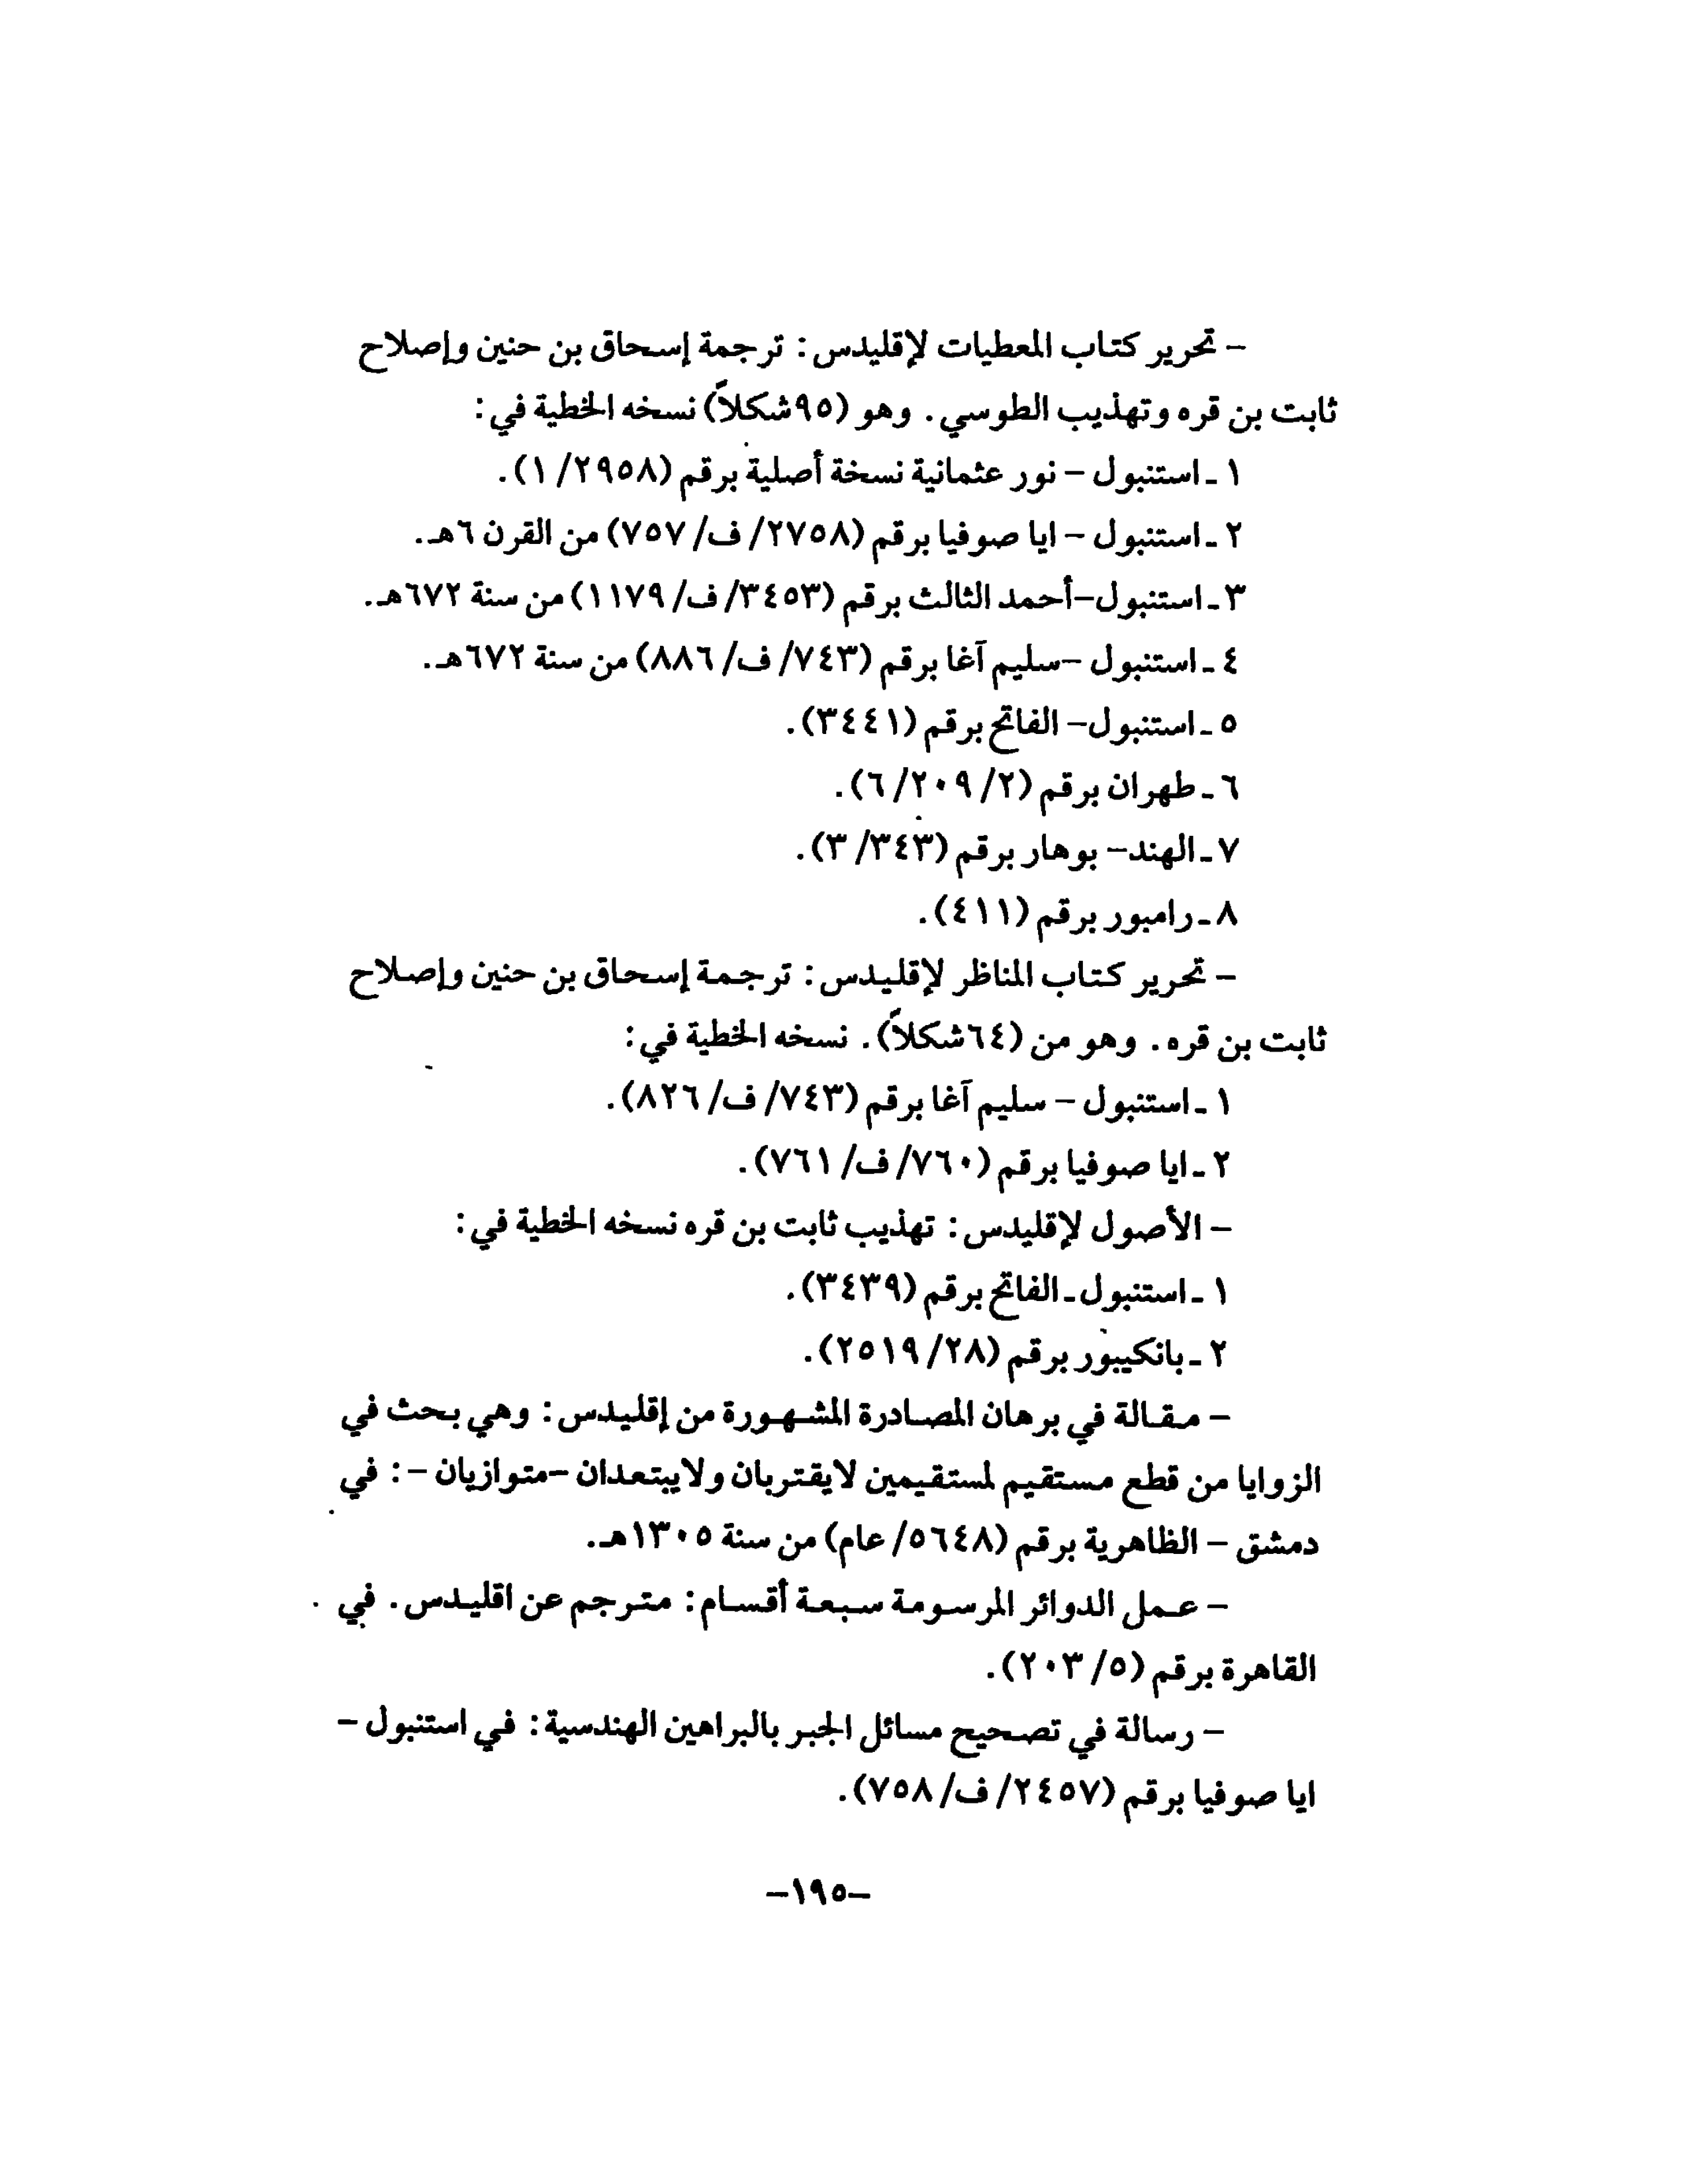 – تحرير كتاب المعطيات لإقليدس: ترجمة إسحاق بن حنين وإصلاح
ثابت بن قره وتهذيب الطوسي. وهو (٩٥شكلاً) نسخه الخطية في:
١ ـ استنبول – نور عثمانية نسخة أصلية برقم (٢٩٥٨/ ١).
٢ ـ استنبول – ايا صوفيا برقم (٢٧٥٨/ ف/ ٧٥٧) من القرن ٦هـ.
٣ ـ استنبول–أحمد الثالث برقم (٣٤٥٣/ ف/ ١١٧٩) من سنة ٦٧٢هـ.
٤ ـ استنبول –سليم آغا برقم (٧٤٣/ ف/ ٨٨٦) من سنة ٦٧٢هـ.
٥ ـ استنبول– الفاتح برقم (٣٤٤١).
٦ ـ طهران برقم (٢/ ٢٠٩/ ٦).
٧ ـ الهند– بوهار برقم (٣٤٣/ ٣).
٨ ـ رامبور برقم (٤١١).
– تحرير كتاب المناظر لإقليدس: ترجمة إسحاق بن حنين وإصلاح
ثابت بن قره. وهو من (٦٤شكلاً). نسخه الخطية في:
١ ـ استنبول – سليم آغا برقم (٧٤٣/ ف/ ٨٢٦).
٢ ـ ايا صوفيا برقم (٧٦٠/ ف/ ٧٦١).
– الأصول لإقليدس: تهذيب ثابت بن قره نسخه الخطية في:
١ ـ استنبول ـ الفاتح برقم (٣٤٣٩).
٢ ـ بانكيبور برقم (٢٨/ ٢٥١٩).
– مقالة في برهان المصادرة المشهورة من إقليدس: وهي بحث في
الزوايا من قطع مستقيم لمستقيمين لايقتربان ولايبتعدان –متوازيان –: في
دمشق – الظاهرية برقم (٥٦٤٨/ عام) من سنة ١٣٠٥هـ.
– عمل الدوائر المرسومة سبعة أقسام: مترجم عن اقليدس. في
القاهرة برقم (٥/ ٢٠٣).
– رسالة في تصحيح مسائل الجبر بالبراهين الهندسية: في استنبول –
ايا صوفيا برقم (٢٤٥٧/ ف/ ٧٥٨).
–١٩٥–